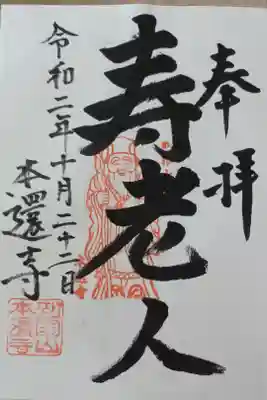 奉拝
寿老人
令和二年十月二十二日
本還寺